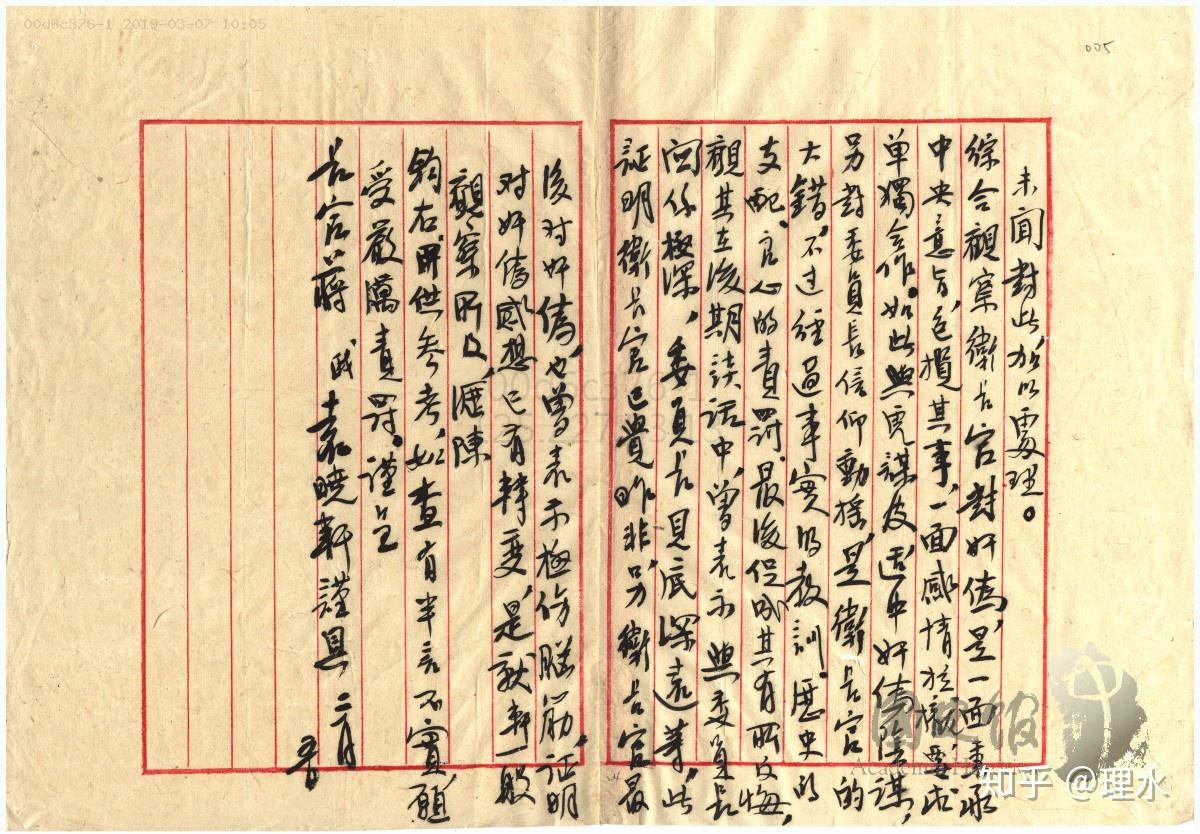 00d6c376-1 2019-03-07 10:05
005
未聞對此加以處理。
綜合觀察衛長官對奸偽,是一面秉承
中央意旨,包攬其事,一面感情於
單獨合作。如此與虎謀皮,適中奸偽陰謀,
另對委員長信仰動搖,是衛長官的
大錯。不过經過事實的教訓。歷史的
支配。良心的責罰。最後促成其有所反悔,
觀其在後期談话中,曾表示與委員長
関係極深,委員長見底深遠等,此
証明衛長官已覺昨非,另衛長官最
後对奸偽,也曾表示極伤腦筋,証明
对奸偽感想已有轉变,是就軒一般
觀察所及,瀝陳
鈞右,藉供参考,如查有半言不實,願
受嚴厲責罸。謹呈
長官蔣 職 袁曉軒謹具 二月
國史館
Academia Historica
知乎 @理水